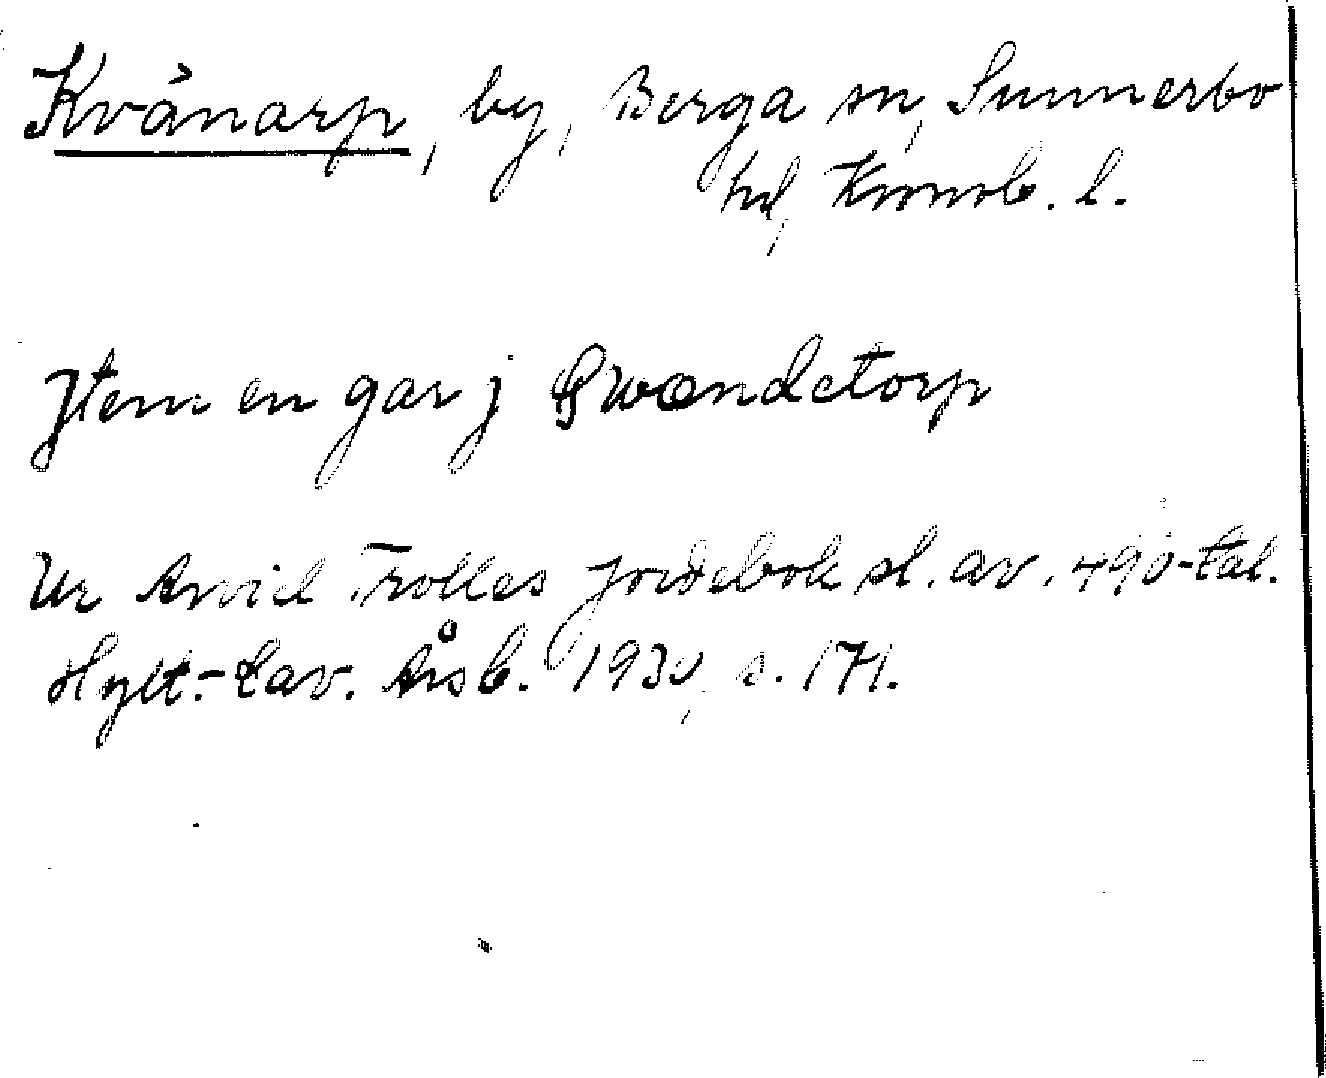 Kvånarp, by, Berga sn, Sunnerbo
hd, Kronob. l.
Jtem en gar j Qwændetorp
Ur Arvid Trolles jordebok sl. av. 490-tal.
Hylt.-Cav. Årsb. 1930, s. 171.